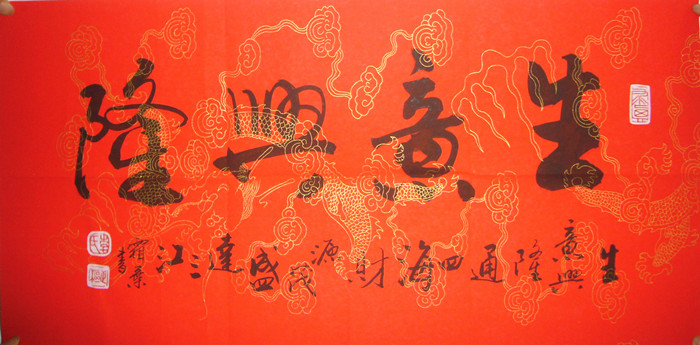 生意興隆
生意興隆通四海財源茂盛達三江
霜葉書